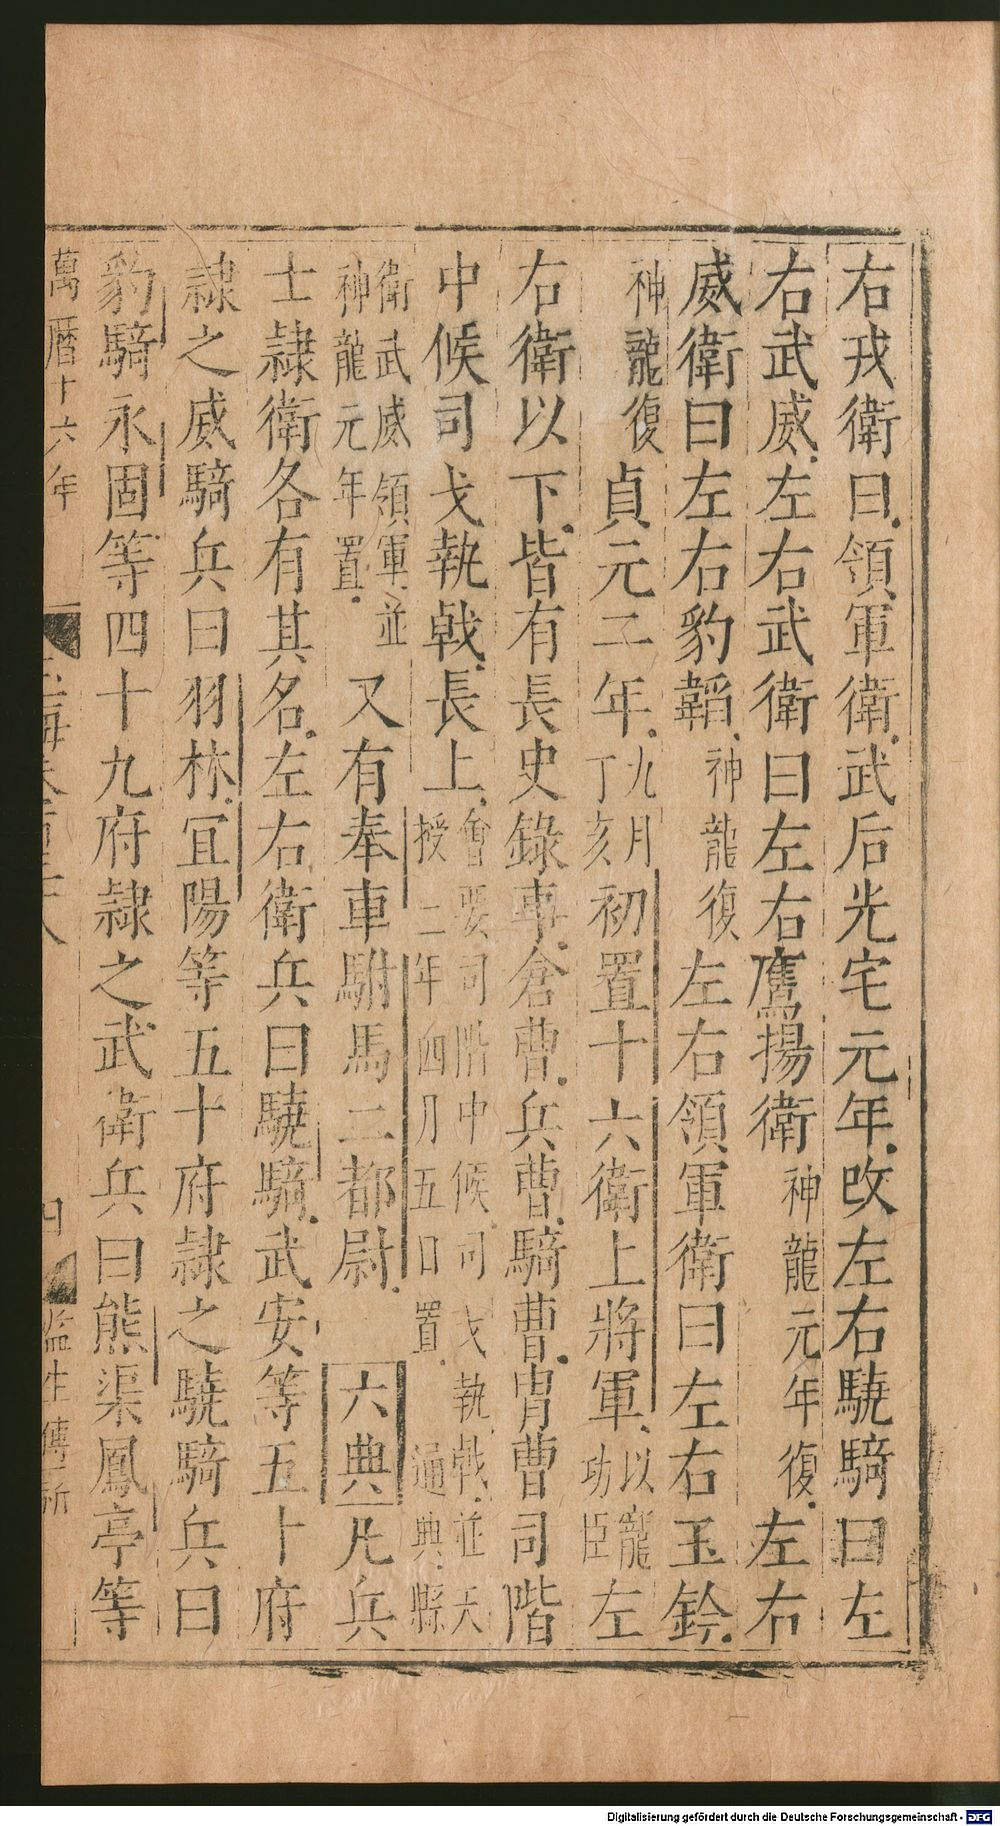 右戎衛曰領軍衛武后光宅元年改左右驍騎曰左
右武威左右武衛曰左右鷹揚衛神龍元年復左右
威衛曰左右豹韜神龍復左右領軍衛曰左右玉鈐
神龍復貞元二年九月丁亥初置十六衛上將軍以寵功臣左
右衛以下皆有長史錄事倉曹兵曹騎曹冑曹司階
中候司戈執戟長上會要司階中候司戈執戟並天授二年四月五日置通典縣
衛武威領軍並神龍元年置又有奉車駙馬二都尉六典凡兵
士隷衛各有其名左右衛兵曰驍騎武安等五十府
隷之威騎兵曰羽林宜陽等五十府隷之驍騎兵曰
豹騎永固等四十九府隷之武衛兵曰熊渠鳳亭等
萬曆十六年
監生傅
Digitalisierung gefördert durch die Deutsche Forschungsgemeinschaft - DFG